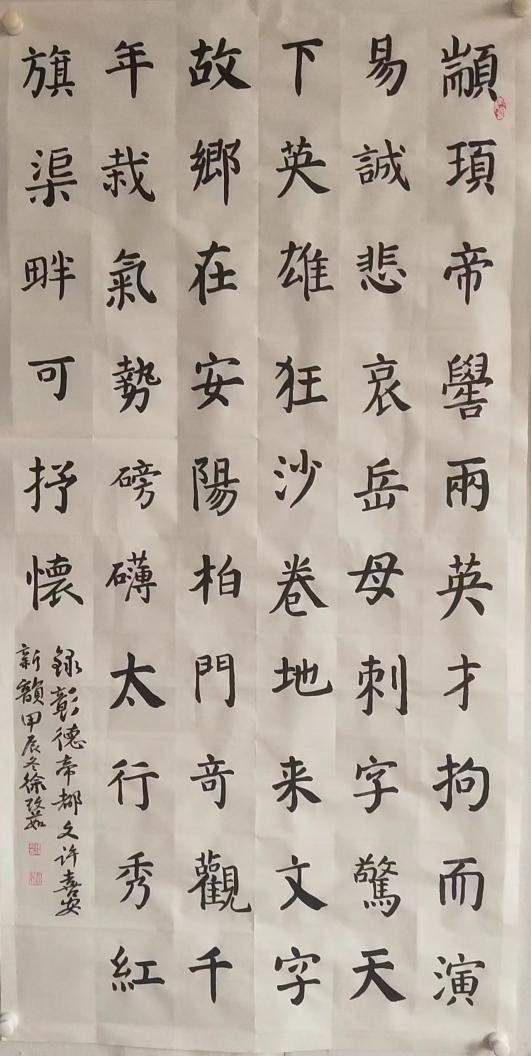 顓頊帝嚳兩英才拘而演
易誠悲哀岳母刺字驚天
下英雄狂沙卷地来文字
故鄉在安陽柏門竒觀千
年栽氣勢磅礴太行秀紅
旗渠畔可抒懷
録彰德帝都文许喜安
新韻甲辰冬徐